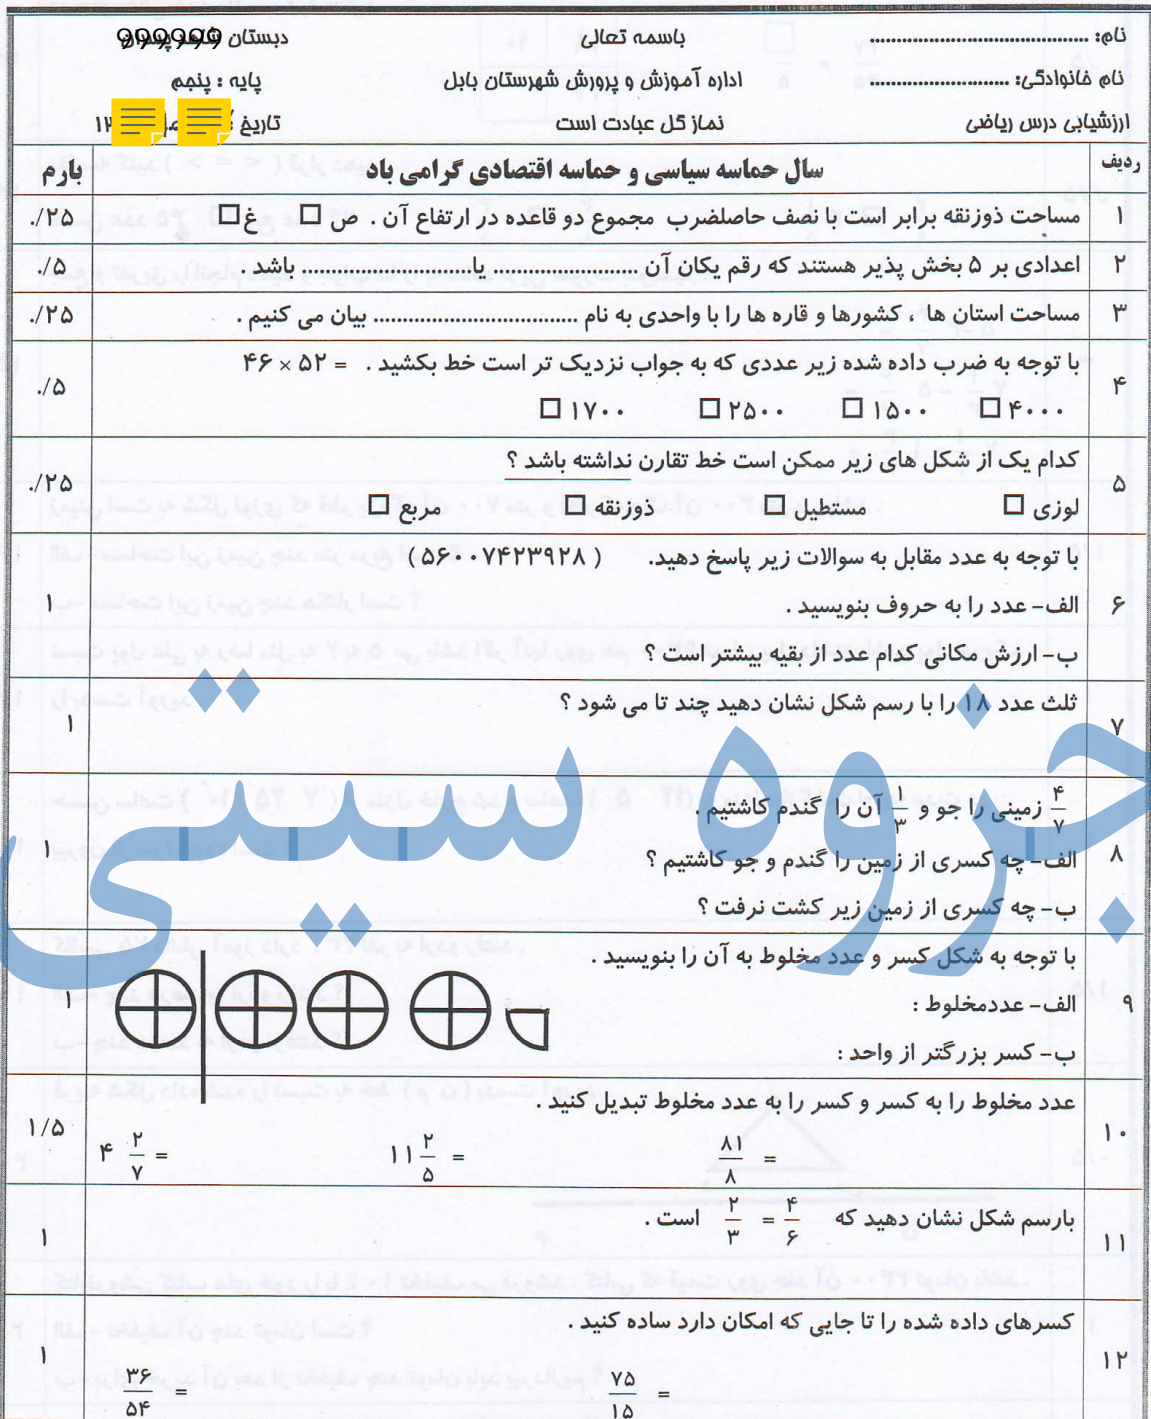 نام: ............................ باسمه تعالی دبستان
نام خانوادگی: ............................ اداره آموزش و پرورش شهرستان بابل پایه : پنجم
ارزشیابی درس ریاضی نماز گل عبادت است تاریخ
ردیف سال حماسه سیاسی و حماسه اقتصادی گرامی باد بارم
۱ مساحت ذوزنقه برابر است با نصف حاصلضرب مجموع دو قاعده در ارتفاع آن . ص □ غ □ ۲۵/.
۲ اعدادی بر ۵ بخش پذیر هستند که رقم یکان آن ........................ یا........................ باشد . ۵/.
۳ مساحت استان ها ، کشورها و قاره ها را با واحدی به نام .................................. بیان می کنیم . ۲۵/.
۴ با توجه به ضرب داده شده زیر عددی که به جواب نزدیک تر است خط بکشید . = ۵۲ × ۴۶ ۵/.
۴۰۰۰ □ ۱۵۰۰ □ ۲۵۰۰ □ ۱۷۰۰ □
۵ کدام یک از شکل های زیر ممکن است خط تقارن نداشته باشد ؟ ۲۵/.
لوزی □ مستطیل □ ذوزنقه □ مربع □
با توجه به عدد مقابل به سوالات زیر پاسخ دهید. ( ۵۶۰۰۷۴۲۳۹۲۸ )
۶ الف- عدد را به حروف بنویسید . ۱
ب- ارزش مکانی کدام عدد از بقیه بیشتر است ؟
۷ ثلث عدد ۱۸ را با رسم شکل نشان دهید چند تا می شود ؟ ۱
۴/۷ زمینی را جو و ۱/۳ آن را گندم کاشتیم .
۸ الف- چه کسری از زمین را گندم و جو کاشتیم ؟ ۱
ب- چه کسری از زمین زیر کشت نرفت ؟
جزوه سیتی
با توجه به شکل کسر و عدد مخلوط به آن را بنویسید .
۹ الف- عددمخلوط : ۱
ب- کسر بزرگتر از واحد :
۱۰ عدد مخلوط را به کسر و کسر را به عدد مخلوط تبدیل کنید . ۱/۵
۸۱/۸ = ۱۱ ۲/۵ = ۴ ۲/۷ =
۱۱ بارسم شکل نشان دهید که ۴/۶ = ۲/۳ است . ۱
۱۲ کسرهای داده شده را تا جایی که امکان دارد ساده کنید . ۱
۷۵/۱۵ = ۳۶/۵۴ =